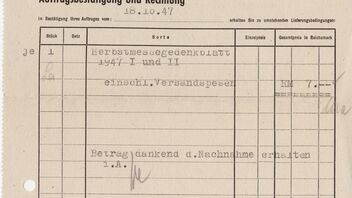 Auftragsbestätigung und Rechnung
18.10.47
In Bestätigung Ihres Auftrages vom: erhalten Sie zu umstehenden Lieferungsbedingungen:
Stück Satz Sorte Einzelpreis Gesamtpreis in Reichsmark
je 1 Herbstmessegedenkblatt
1947 I und II
einschl. Versandspesen RM 7.--
Betrag dankend d. Nachnahme erhalten
i.A.